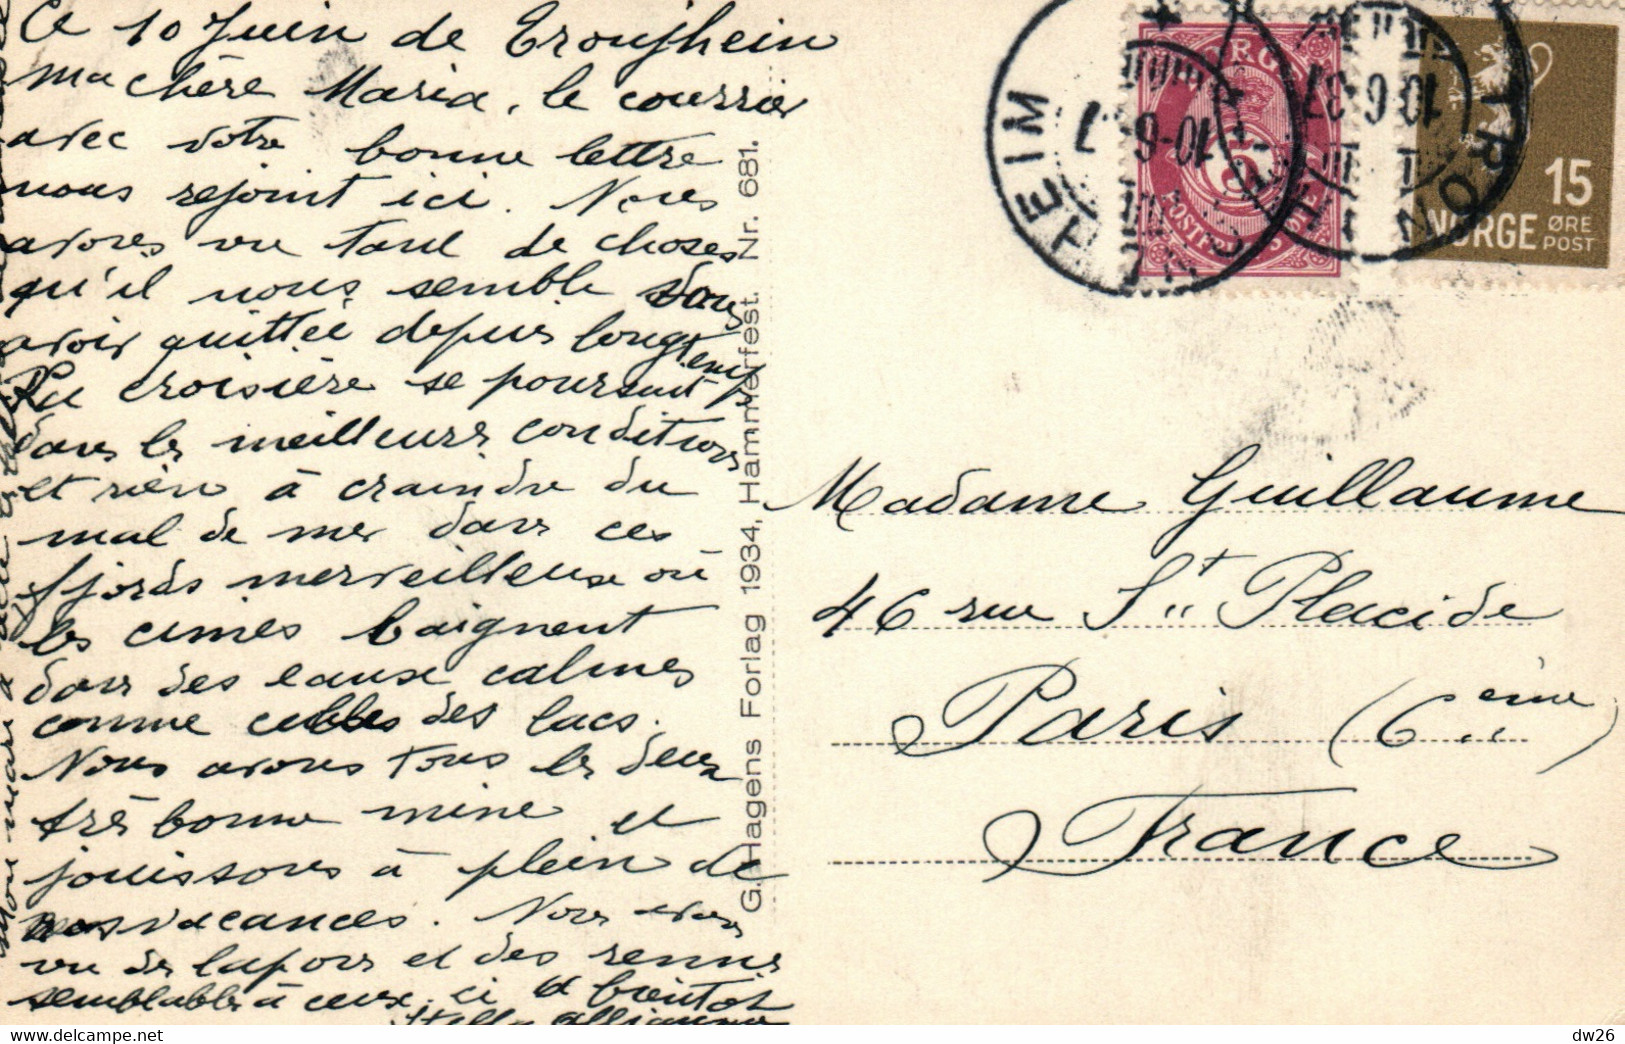 Ce 10 Juin de Tronjhein
Ma chère Maria, le courrier
avec votre bonne lettre
nous rejoint ici. Nous
avons vu tant de choses
qu'il nous semble vous
avoir quittée depuis longtemps
La croisière se poursuit
dans les meilleures conditions
et rien à craindre du
mal de mer dans ces
fjords merveilleux où
les cimes baignent
dans des eaux calmes
comme celles des lacs.
Nous avons tous les deux
très bonne mine et
jouissons à plein de
nos vacances. Nous avons
vu des lapons et des rennes
semblables à ceux ci à bientôt
Mon mari
G. Hagens Forlag 1934, Hammerfest. Nr. 681.
TRONDHEIM
10-6-37
NORGE
5
POSTFRIM 5 ØRE
TRONDHEIM
10-6-37
15
NORGE ØRE POST
Madame Guillaume
46 rue St Placide
Paris (6ème)
France
dw26